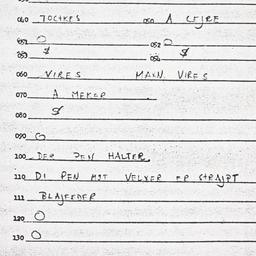 040 JOCHKES 050 A LEJRE
051 O 052 O
053 $ 054 $
060 VIRES MAKN. VIRES
070 A MEKER
080 $
090 O
100 DER PEN HALTER.
110 DI PEN MIT VELKER ER STRAJPT
111 BLAJFEDER
120 O
130 O